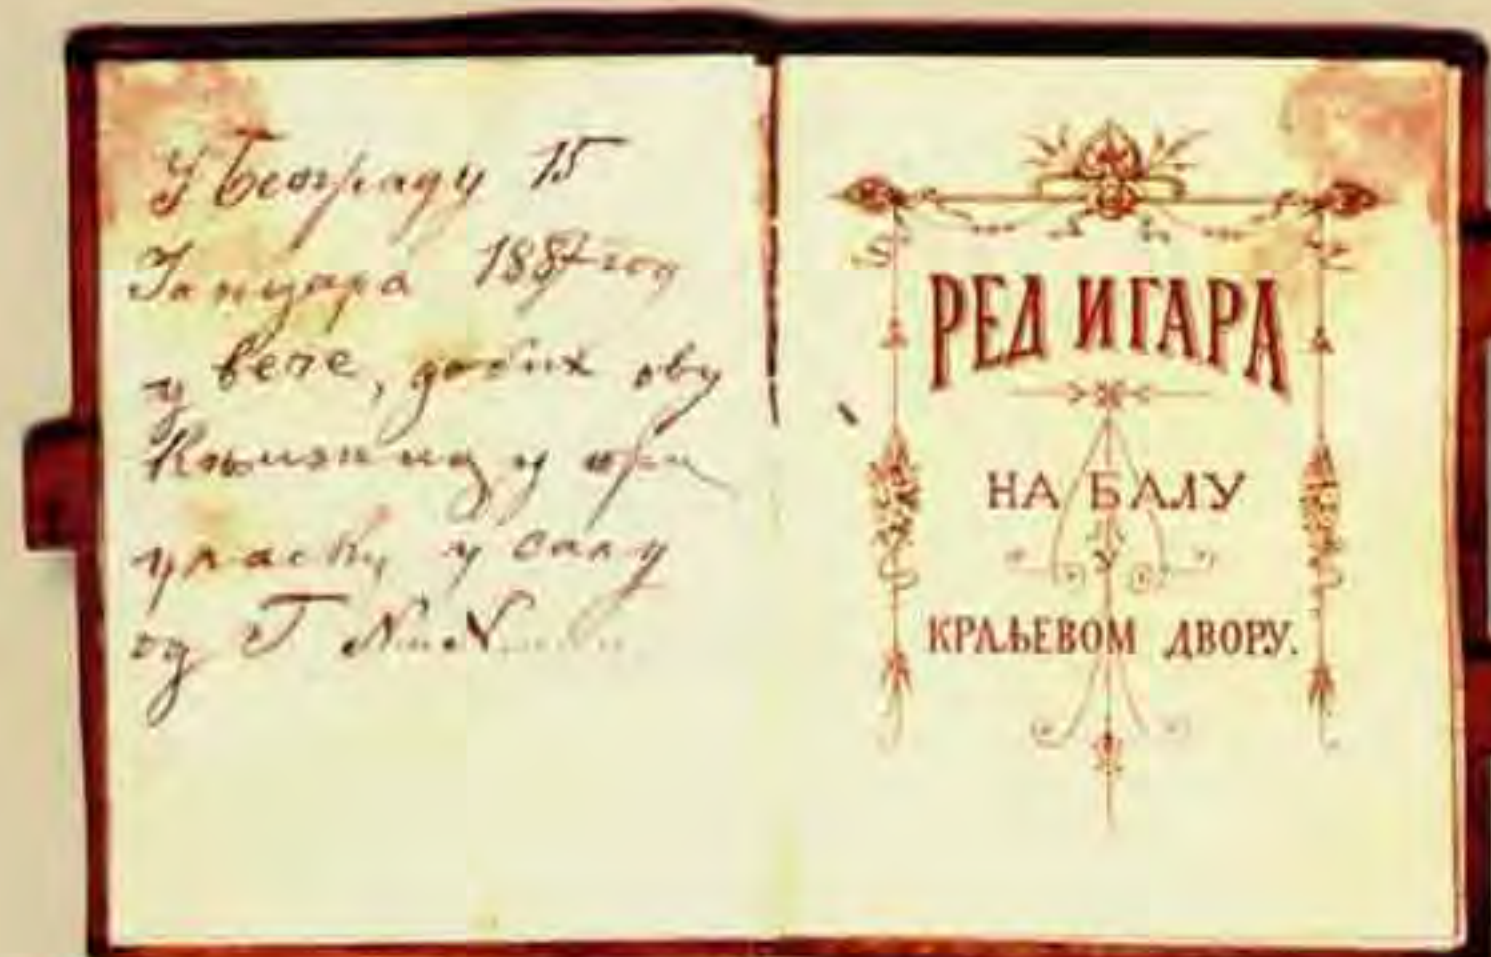 У Београду 15
Јануара 1887 год
у вече, добих ову
Књижицу при
уласку у салу
од Г N.. N......
РЕД ИГАРА
НА БАЛУ
У
КРАЉЕВОМ ДВОРУ.